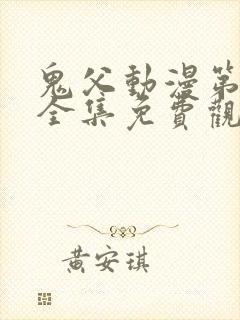 鬼父動漫第
全集免費觀
黃安琪